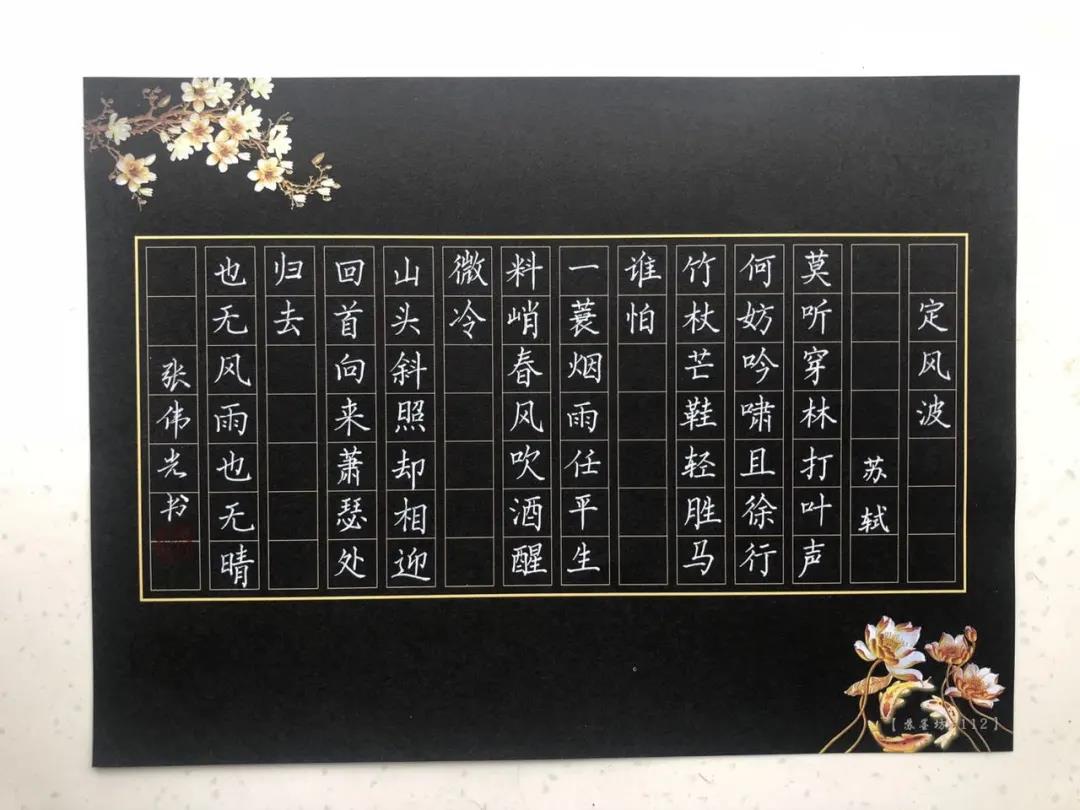 定风波
苏轼
莫听穿林打叶声
何妨吟啸且徐行
竹杖芒鞋轻胜马
谁怕
一蓑烟雨任平生
料峭春风吹酒醒
微冷
山头斜照却相迎
回首向来萧瑟处
归去
也无风雨也无晴
张伟光书
【苏墨坊 112】